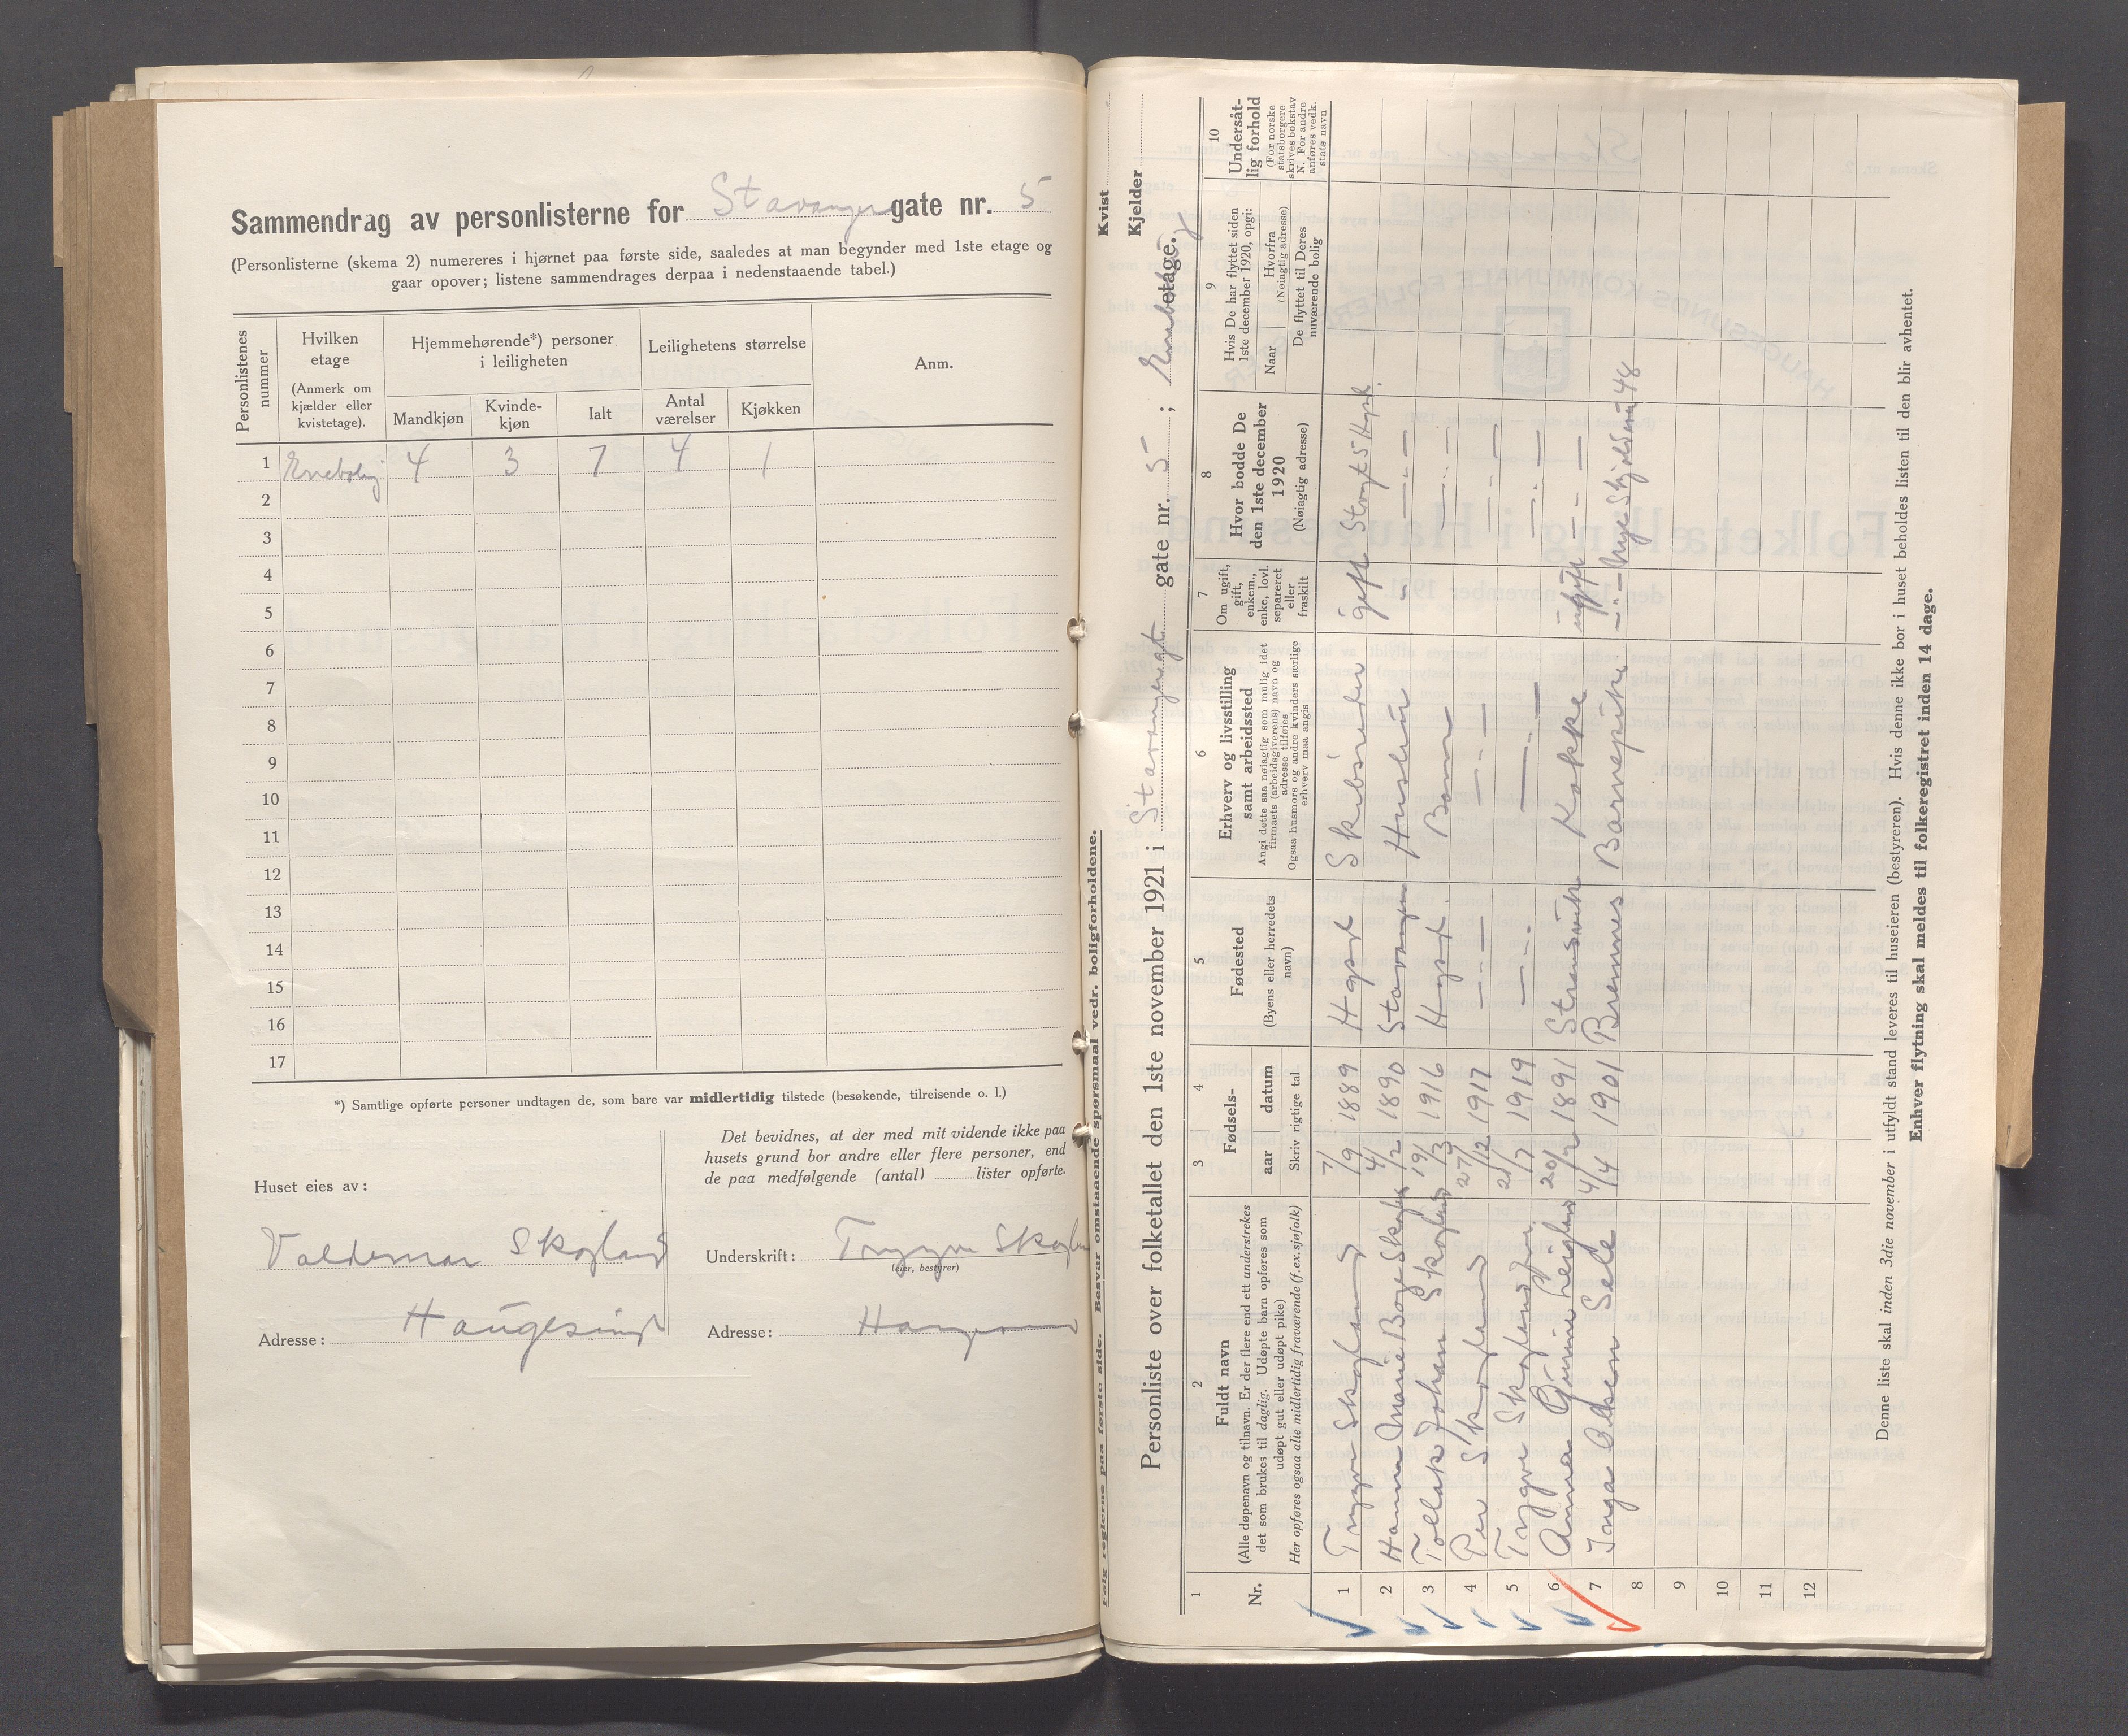 Sammendrag av personlisterne for Stavanger gate nr. 5
(Personlisterne (skema 2) numereres i hjørnet paa første side, saaledes at man begynder med 1ste etage og
gaar opover; listene sammendrages derpaa i nedenstaaende tabel.)
Personlistenes nummer
Hvilken etage
(Anmerk om kjælder eller kvistetage).
Hjemmehørende*) personer i leiligheten
Leilighetens størrelse
Anm.
Mandkjøn
Kvinde-kjøn
Ialt
Antal værelser
Kjøkken
1 Enebolig 4 3 7 4 1
2
3
4
5
6
7
8
9
10
11
12
13
14
15
16
17
*) Samtlige opførte personer undtagen de, som bare var midlertidig tilstede (besøkende, tilreisende o. l.)
Det bevidnes, at der med mit vidende ikke paa
husets grund bor andre eller flere personer, end
de paa medfølgende (antal) lister opførte.
Huset eies av:
Valdemar Skogland
Underskrift: Trygve Skogland
(eier, bestyrer)
Adresse: Haugesund
Adresse: Haugesund
Følg reglerne paa første side. Besvar omstaaende spørsmaal vedr. boligforholdene.
Kvist
Kjelder
Personliste over folketallet den 1ste november 1921 i Stavangergt gate nr. 5 ; Enebolig etage.
1
2
3
4
5
6
7
8
9
10
Nr.
Fuldt navn
(Alle døpenavn og tilnavn. Er der flere end ett understrekes
det som brukes til daglig. Udøpte barn opføres som
udøpt gut eller udøpt pike)
Her opføres ogsaa alle midlertidig fraværende (f.ex.sjøfolk)
Fødsels-
aar
datum
Skriv rigtige tal
Fødested
(Byens eller herredets navn)
Erhverv og livsstilling
samt arbeidssted
Angi dette saa nøiagtig som mulig idet
firmaets (arbeidsgiverens) navn og
adresse tilføies
Ogsaa husmors og andre kvinders særlige
erhverv maa angis
Om ugift,
gift,
enkem.,
enke, lovl.
separeret
eller
fraskilt
Hvor bodde De
den 1ste december
1920
(Nøiagtig adresse)
Hvis De har flyttet siden
1ste december 1920, opgi:
Naar
Hvorfra
(Nøiagtig adresse)
De flyttet til Deres
nuværende bolig
Undersåt-
lig forhold
(For norske
statsborgere
skrives bokstav
N. For andre
anføres vedk.
stats navn
1 Trygve Skogland 7/9 1889 Hgsd Skibsreder gift Stavgt 5 Hgsd.
2 Hanna Marie Boye Skogland 4/2 1890 Stavanger Husstur – — " —
3 Tollak Johan Skogland 19/3 1916 Hgsd. Barn — " —
4 Per Skogland 27/12 1917 — " — — " — — " —
5 Trygve Skogland jr. 21/7 1919 — " — — " — — " —
6 Anna 20/2 1891 Strandvik Kokke ugift — " —
7 Inga Olsen Sele 4/4 1901 Bremnes Barnepike — " — Nye Skjoldvei 48
8
9
10
11
12
Denne liste skal inden 3die november i utfyldt stand leveres til huseieren (bestyreren). Hvis denne ikke bor i huset beholdes listen til den blir avhentet.
Enhver flytning skal meldes til folkeregistret inden 14 dage.